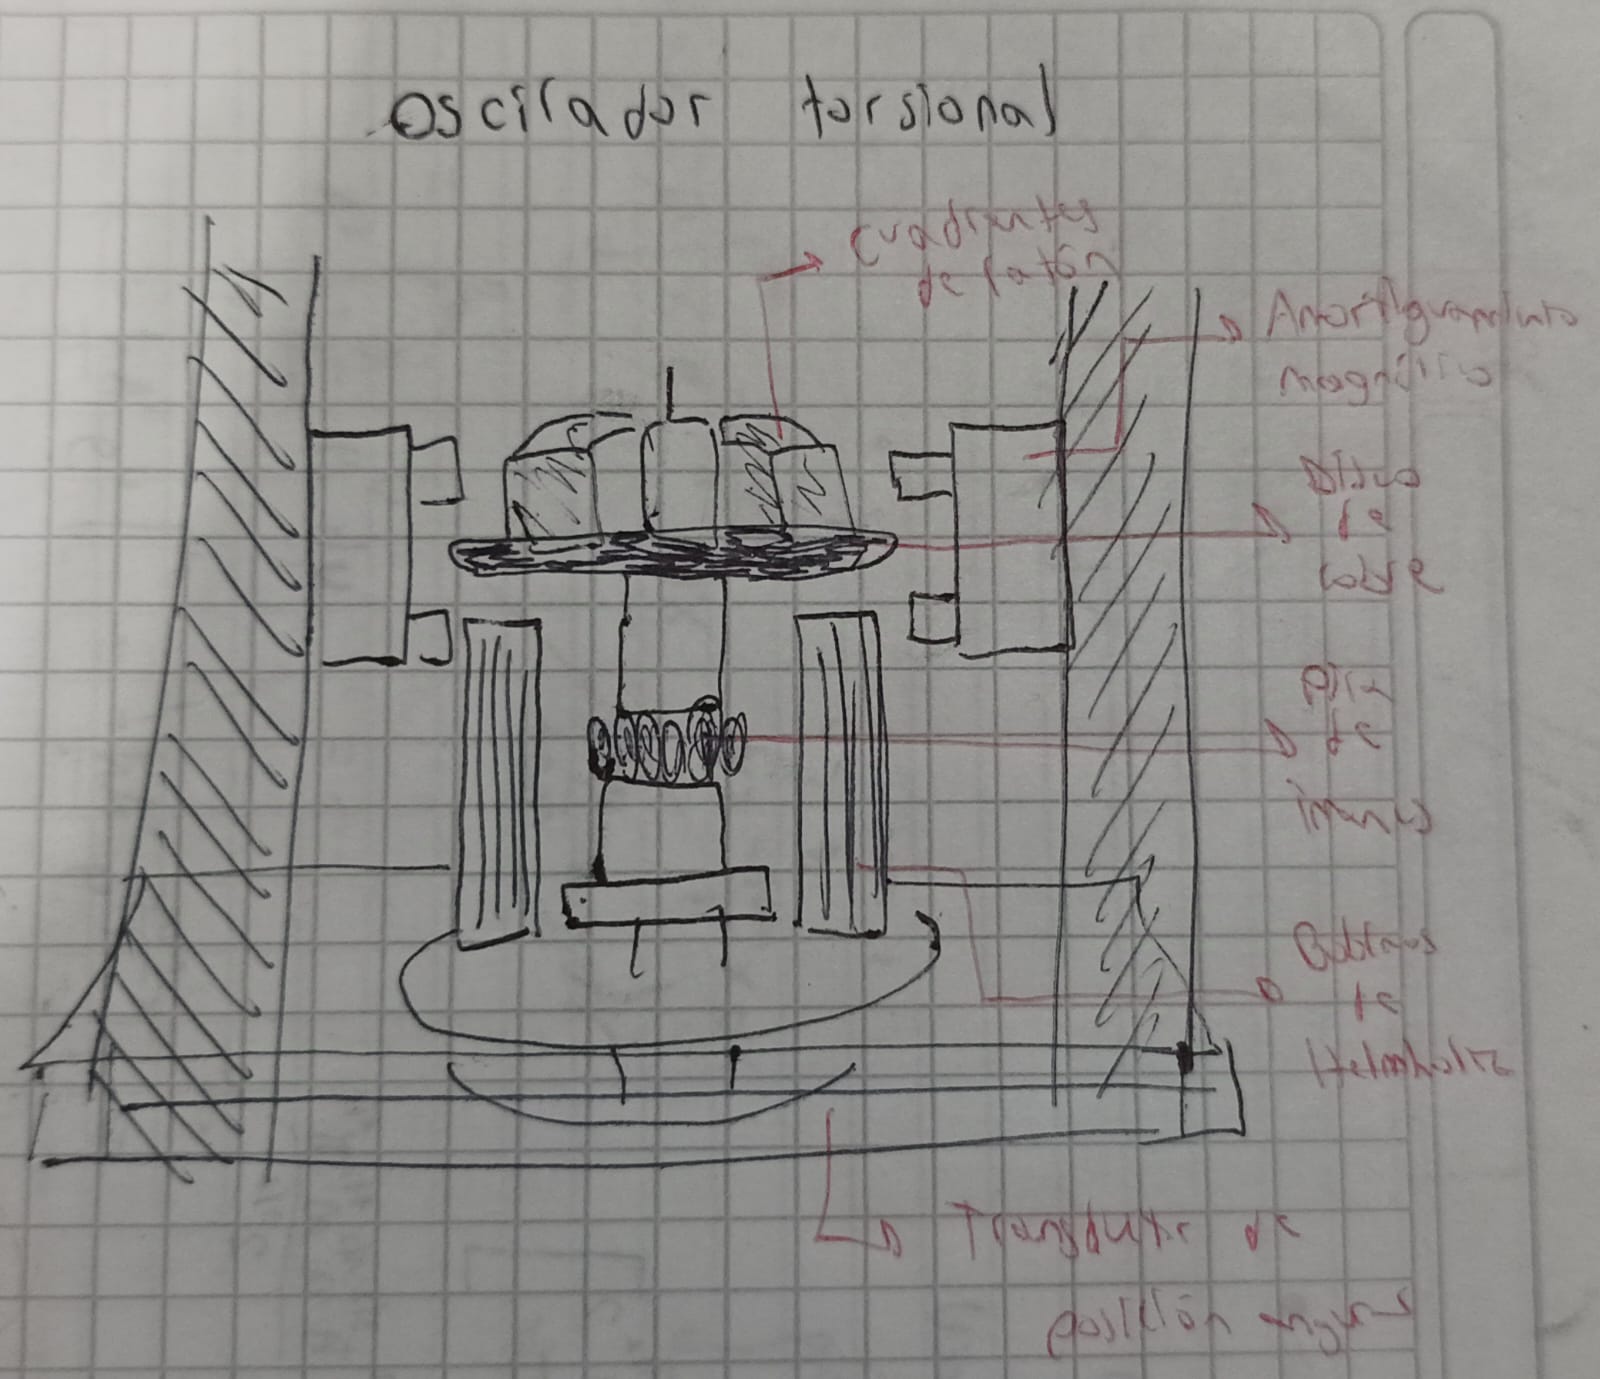 oscilador torsional
Cuadrantes
de latón
Amortiguamiento
magnético
Disco
de
cobre
Pila
de
imanes
Bobinas
de
Helmholtz
Transductor de
posición angular